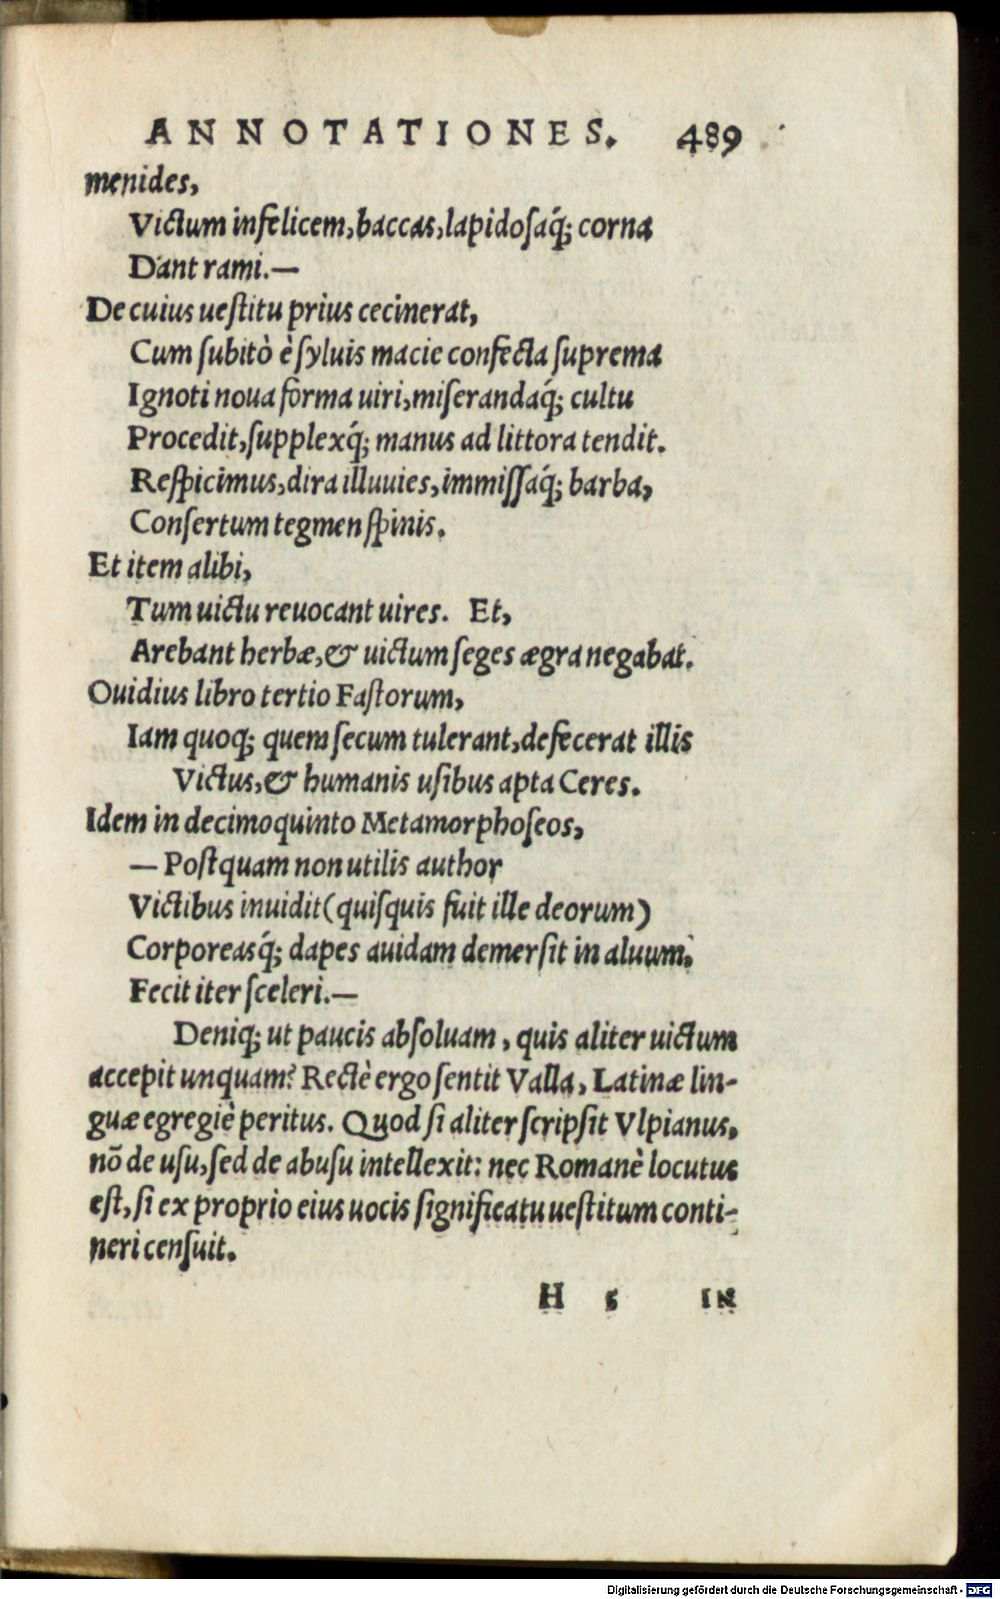 ANNOTATIONES. 489
menides,
Victum infelicem, baccas, lapidosaq́; corna
Dant rami.—
De cuius uestitu prius cecinerat,
Cum subitò è syluis macie confecta suprema
Ignoti noua forma uiri, miserandaq́; cultu
Procedit, supplexq́; manus ad littora tendit.
Respicimus, dira illuuies, immissaq́; barba,
Consertum tegmen spinis.
Et item alibi,
Tum uictu reuocant uires. Et,
Arebant herbæ, & uictum seges ægra negabat.
Ouidius libro tertio Fastorum,
Iam quoq; quem secum tulerant, defecerat illis
Victus, & humanis usibus apta Ceres.
Idem in decimoquinto Metamorphoseos,
— Postquam non utilis author
Victibus inuidit (quisquis fuit ille deorum)
Corporeasq́; dapes auidam demersit in aluum,
Fecit iter sceleri.—
Deniq; ut paucis absoluam, quis aliter uictum
accepit unquam? Rectè ergo sentit Valla, Latinæ lin-
guæ egregiè peritus. Quod si aliter scripsit Vlpianus,
nõ de usu, sed de abusu intellexit: nec Romanè locutus
est, si ex proprio eius uocis significatu uestitum conti-
neri censuit.
H 5 IN
Digitalisierung gefördert durch die Deutsche Forschungsgemeinschaft - DFG